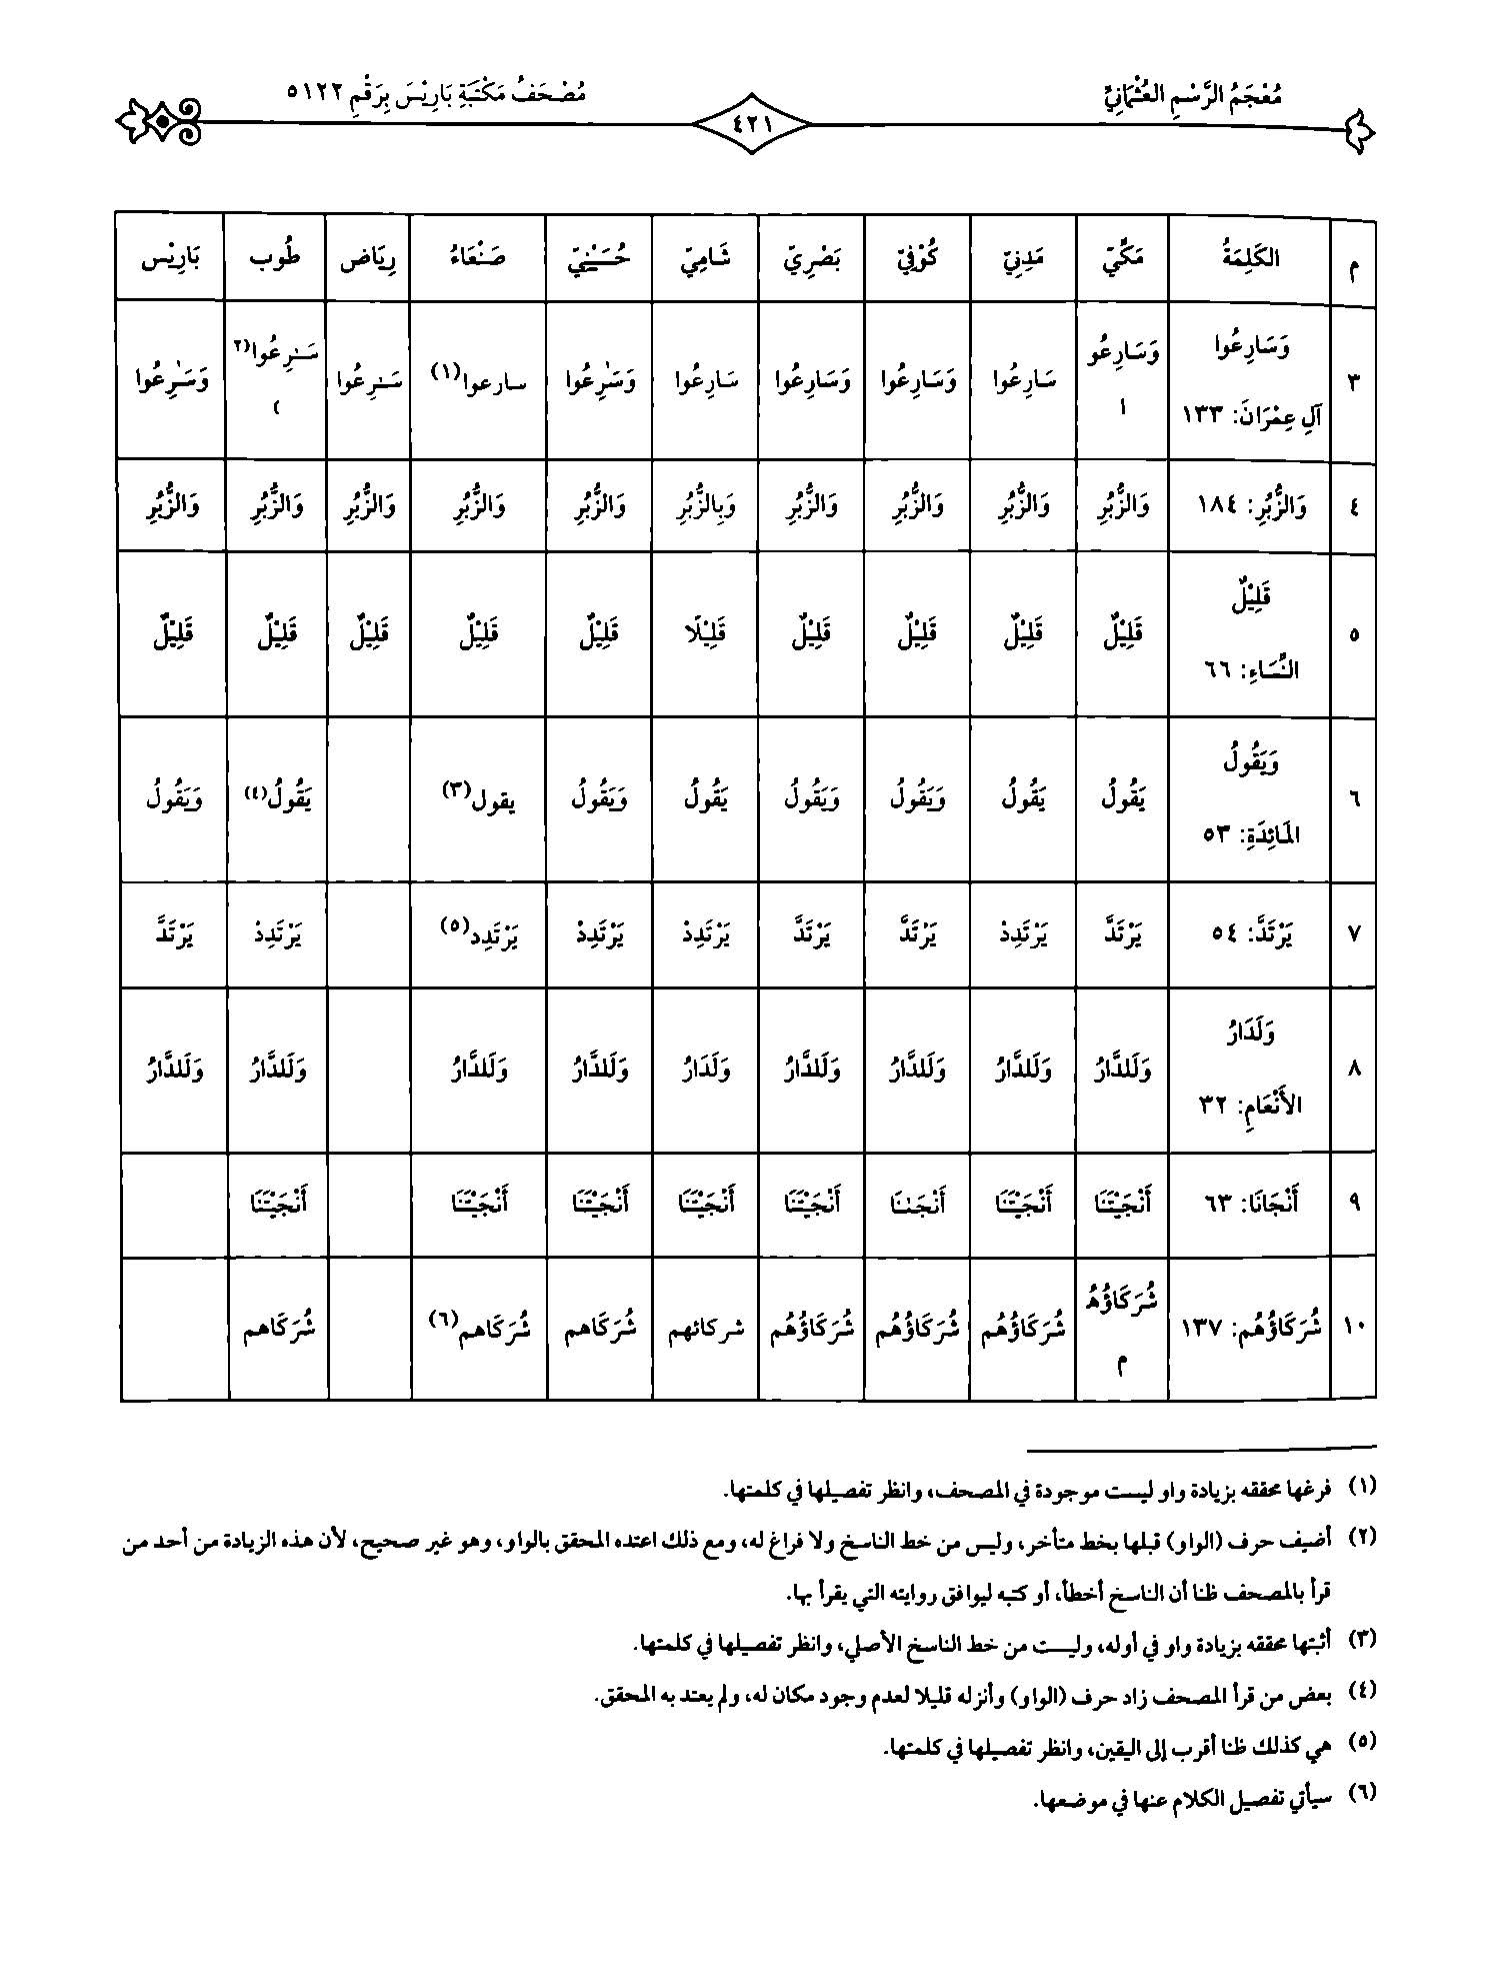 مُعْجَمُ الرَّسْمِ العُثْمَانِيِّ
٤٢١
مُصْحَفُ مَكْتَبَةِ بَارِيْسَ بِرَقْمِ ٥١٢٢
م | الكَلِمَةُ | مَكِّيّ | مَدِنِيّ | كُوْفِيّ | بَصْرِيّ | شَامِيّ | حُسَيْنِيّ | صَنْعَاءُ | رِيَاض | طُوب | بَارِيْس
٣ | وَسَارِعُوا آلِ عِمْرَانَ: ١٣٣ | وَسَارِعُوا | سَارِعُوا | وَسَارِعُوا | وَسَارِعُوا | سَارِعُوا | وَسَٰرِعُوا | سارعوا(١) | سَٰرِعُوا | سَٰرِعُوا(٢) | وَسَٰرِعُوا
٤ | وَالزُّبُرِ: ١٨٤ | وَالزُّبُرِ | وَالزُّبُرِ | وَالزُّبُرِ | وَالزُّبُرِ | وَبِالزُّبُرِ | وَالزُّبُرِ | وَالزُّبُرِ | وَالزُّبُرِ | وَالزُّبُرِ | وَالزُّبُرِ
٥ | قَلِيْلٌ النِّسَاءِ: ٦٦ | قَلِيْلٌ | قَلِيْلٌ | قَلِيْلٌ | قَلِيْلٌ | قَلِيْلًا | قَلِيْلٌ | قَلِيْلٌ | قَلِيْلٌ | قَلِيْلٌ | قَلِيْلٌ
٦ | وَيَقُولُ المَائِدَةِ: ٥٣ | يَقُولُ | يَقُولُ | وَيَقُولُ | وَيَقُولُ | يَقُولُ | وَيَقُولُ | يقول(٣) | | يَقُولُ(٤) | وَيَقُولُ
٧ | يَرْتَدَّ: ٥٤ | يَرْتَدَّ | يَرْتَدِدْ | يَرْتَدَّ | يَرْتَدَّ | يَرْتَدِدْ | يَرْتَدِدْ | يَرْتَدِد(٥) | | يَرْتَدِدْ | يَرْتَدَّ
٨ | وَلَدَارُ الأَنْعَامِ: ٣٢ | وَلَلدَّارُ | وَلَلدَّارُ | وَلَلدَّارُ | وَلَلدَّارُ | وَلَدَارُ | وَلَلدَّارُ | وَلَلدَّارُ | | وَلَلدَّارُ | وَلَلدَّارُ
٩ | أَنْجَانَا: ٦٣ | أَنْجَيْتَنَا | أَنْجَيْتَنَا | أَنْجَىٰنَا | أَنْجَيْتَنَا | أَنْجَيْتَنَا | أَنْجَيْتَنَا | أَنْجَيْتَنَا | | أَنْجَيْتَنَا |
١٠ | شُرَكَاؤُهُم: ١٣٧ | شُرَكَاؤُهُم | شُرَكَاؤُهُم | شُرَكَاؤُهُم | شُرَكَاؤُهُم | شركائهم | شُرَكَاهم | شُرَكَاهم(٦) | | شُرَكَاهم |
(١) فرغها محققه بزيادة واو ليست موجودة في المصحف، وانظر تفصيلها في كلمتها.
(٢) أضيف حرف (الواو) قبلها بخط متأخر، وليس من خط الناسخ ولا فراغ له، ومع ذلك اعتده المحقق بالواو، وهو غير صحيح، لأن هذه الزيادة من أحد من
قرأ بالمصحف ظنا أن الناسخ أخطأ، أو كتبه ليوافق روايته التي يقرأ بها.
(٣) أثبتها محققه بزيادة واو في أوله، وليست من خط الناسخ الأصلي، وانظر تفصيلها في كلمتها.
(٤) بعض من قرأ المصحف زاد حرف (الواو) وأنزله قليلا لعدم وجود مكان له، ولم يعتد به المحقق.
(٥) هي كذلك ظنا أقرب إلى اليقين، وانظر تفصيلها في كلمتها.
(٦) سيأتي تفصيل الكلام عنها في موضعها.